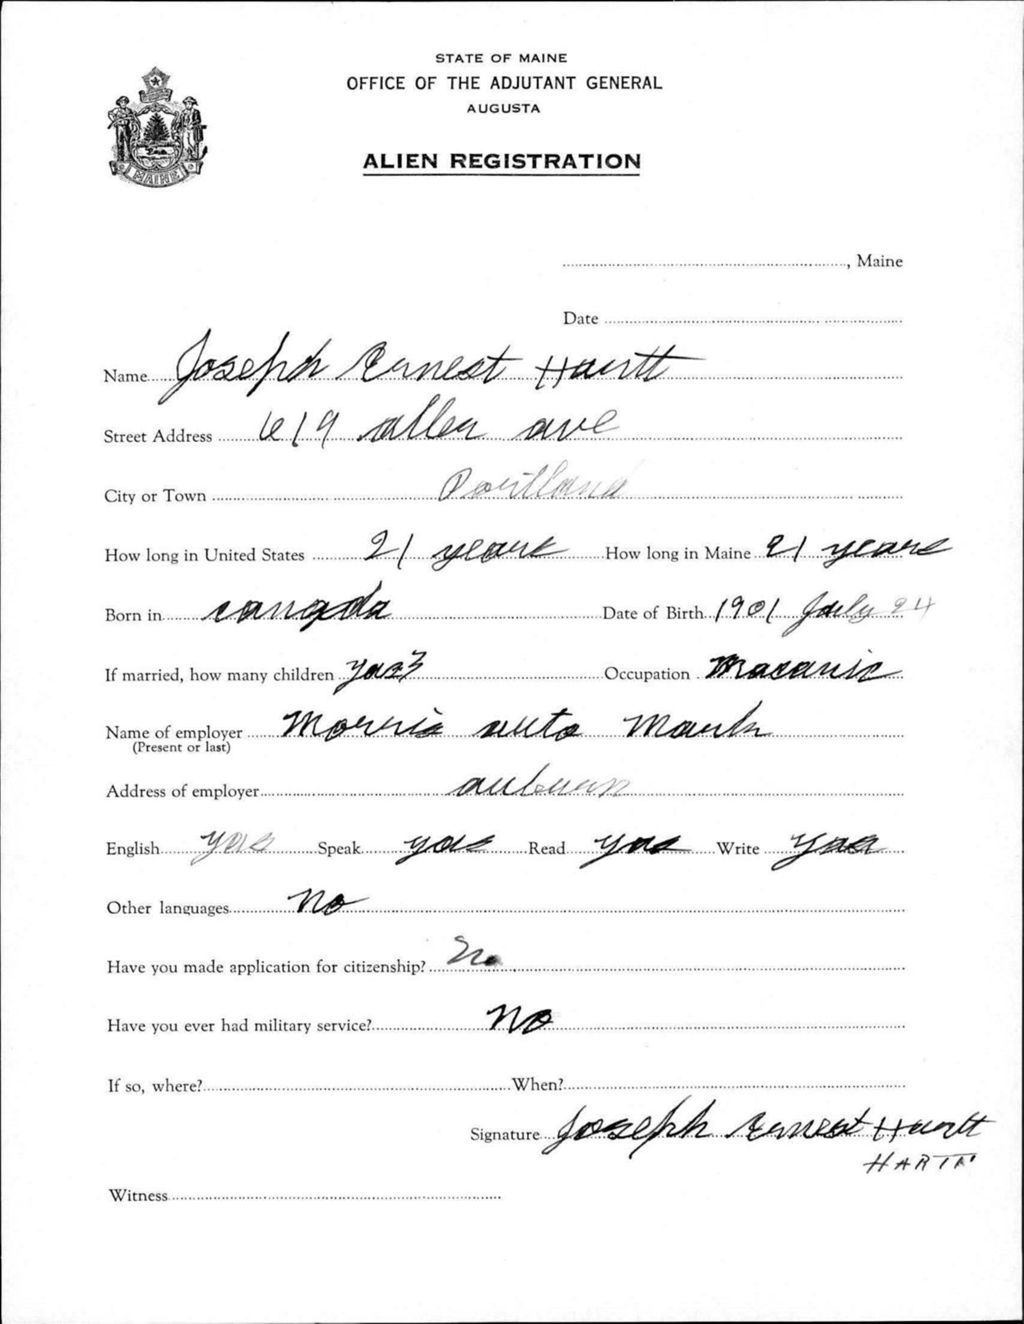 STATE OF MAINE
OFFICE OF THE ADJUTANT GENERAL
AUGUSTA
ALIEN REGISTRATION
MAINE
, Maine
Date
Name Joseph Ernest Hartt
Street Address 619 allen ave
City or Town Portland
How long in United States 21 years How long in Maine 21 years
Born in canada Date of Birth 1901 July 24
If married, how many children yas 3 Occupation Macanic
Name of employer Morris auto
(Present or last)
Address of employer auburn
English yas Speak yas Read yas Write yas
Other languages No
Have you made application for citizenship? No
Have you ever had military service? No
If so, where? When?
Signature Joseph Ernest Hartt
HARTT
Witness